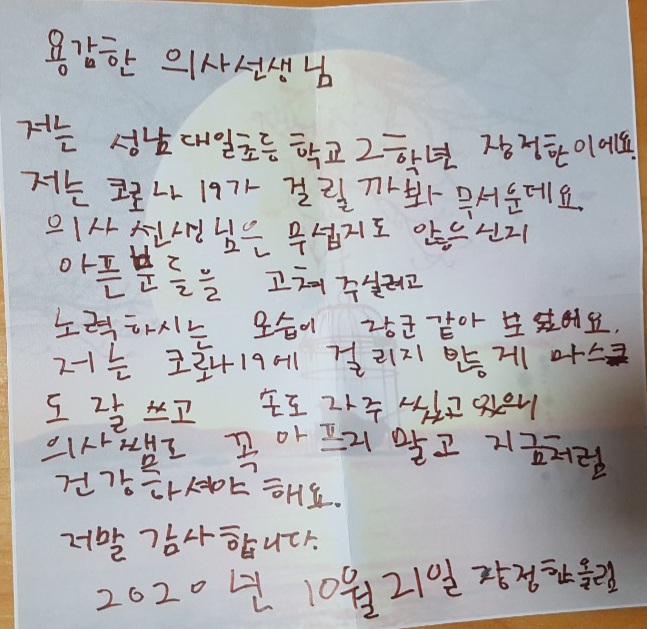 용감한 의사선생님
저는 성남대일초등학교 2학년 장정한이에요.
저는 코로나19가 걸릴까봐 무서운데요.
의사 선생님은 무섭지도 않으신지
아픈 분들을 고쳐주실려고
노력하시는 모습이 장군같아 보였어요.
저는 코로나19에 걸리지 안능게 마스크
도 잘 쓰고 손도 자주 씻고 있으니
의사쌤도 꼭 아프지 말고 지금처럼
건강하셔야 해요.
저말 감사합니다.
2020년 10월 21일 장정한올림